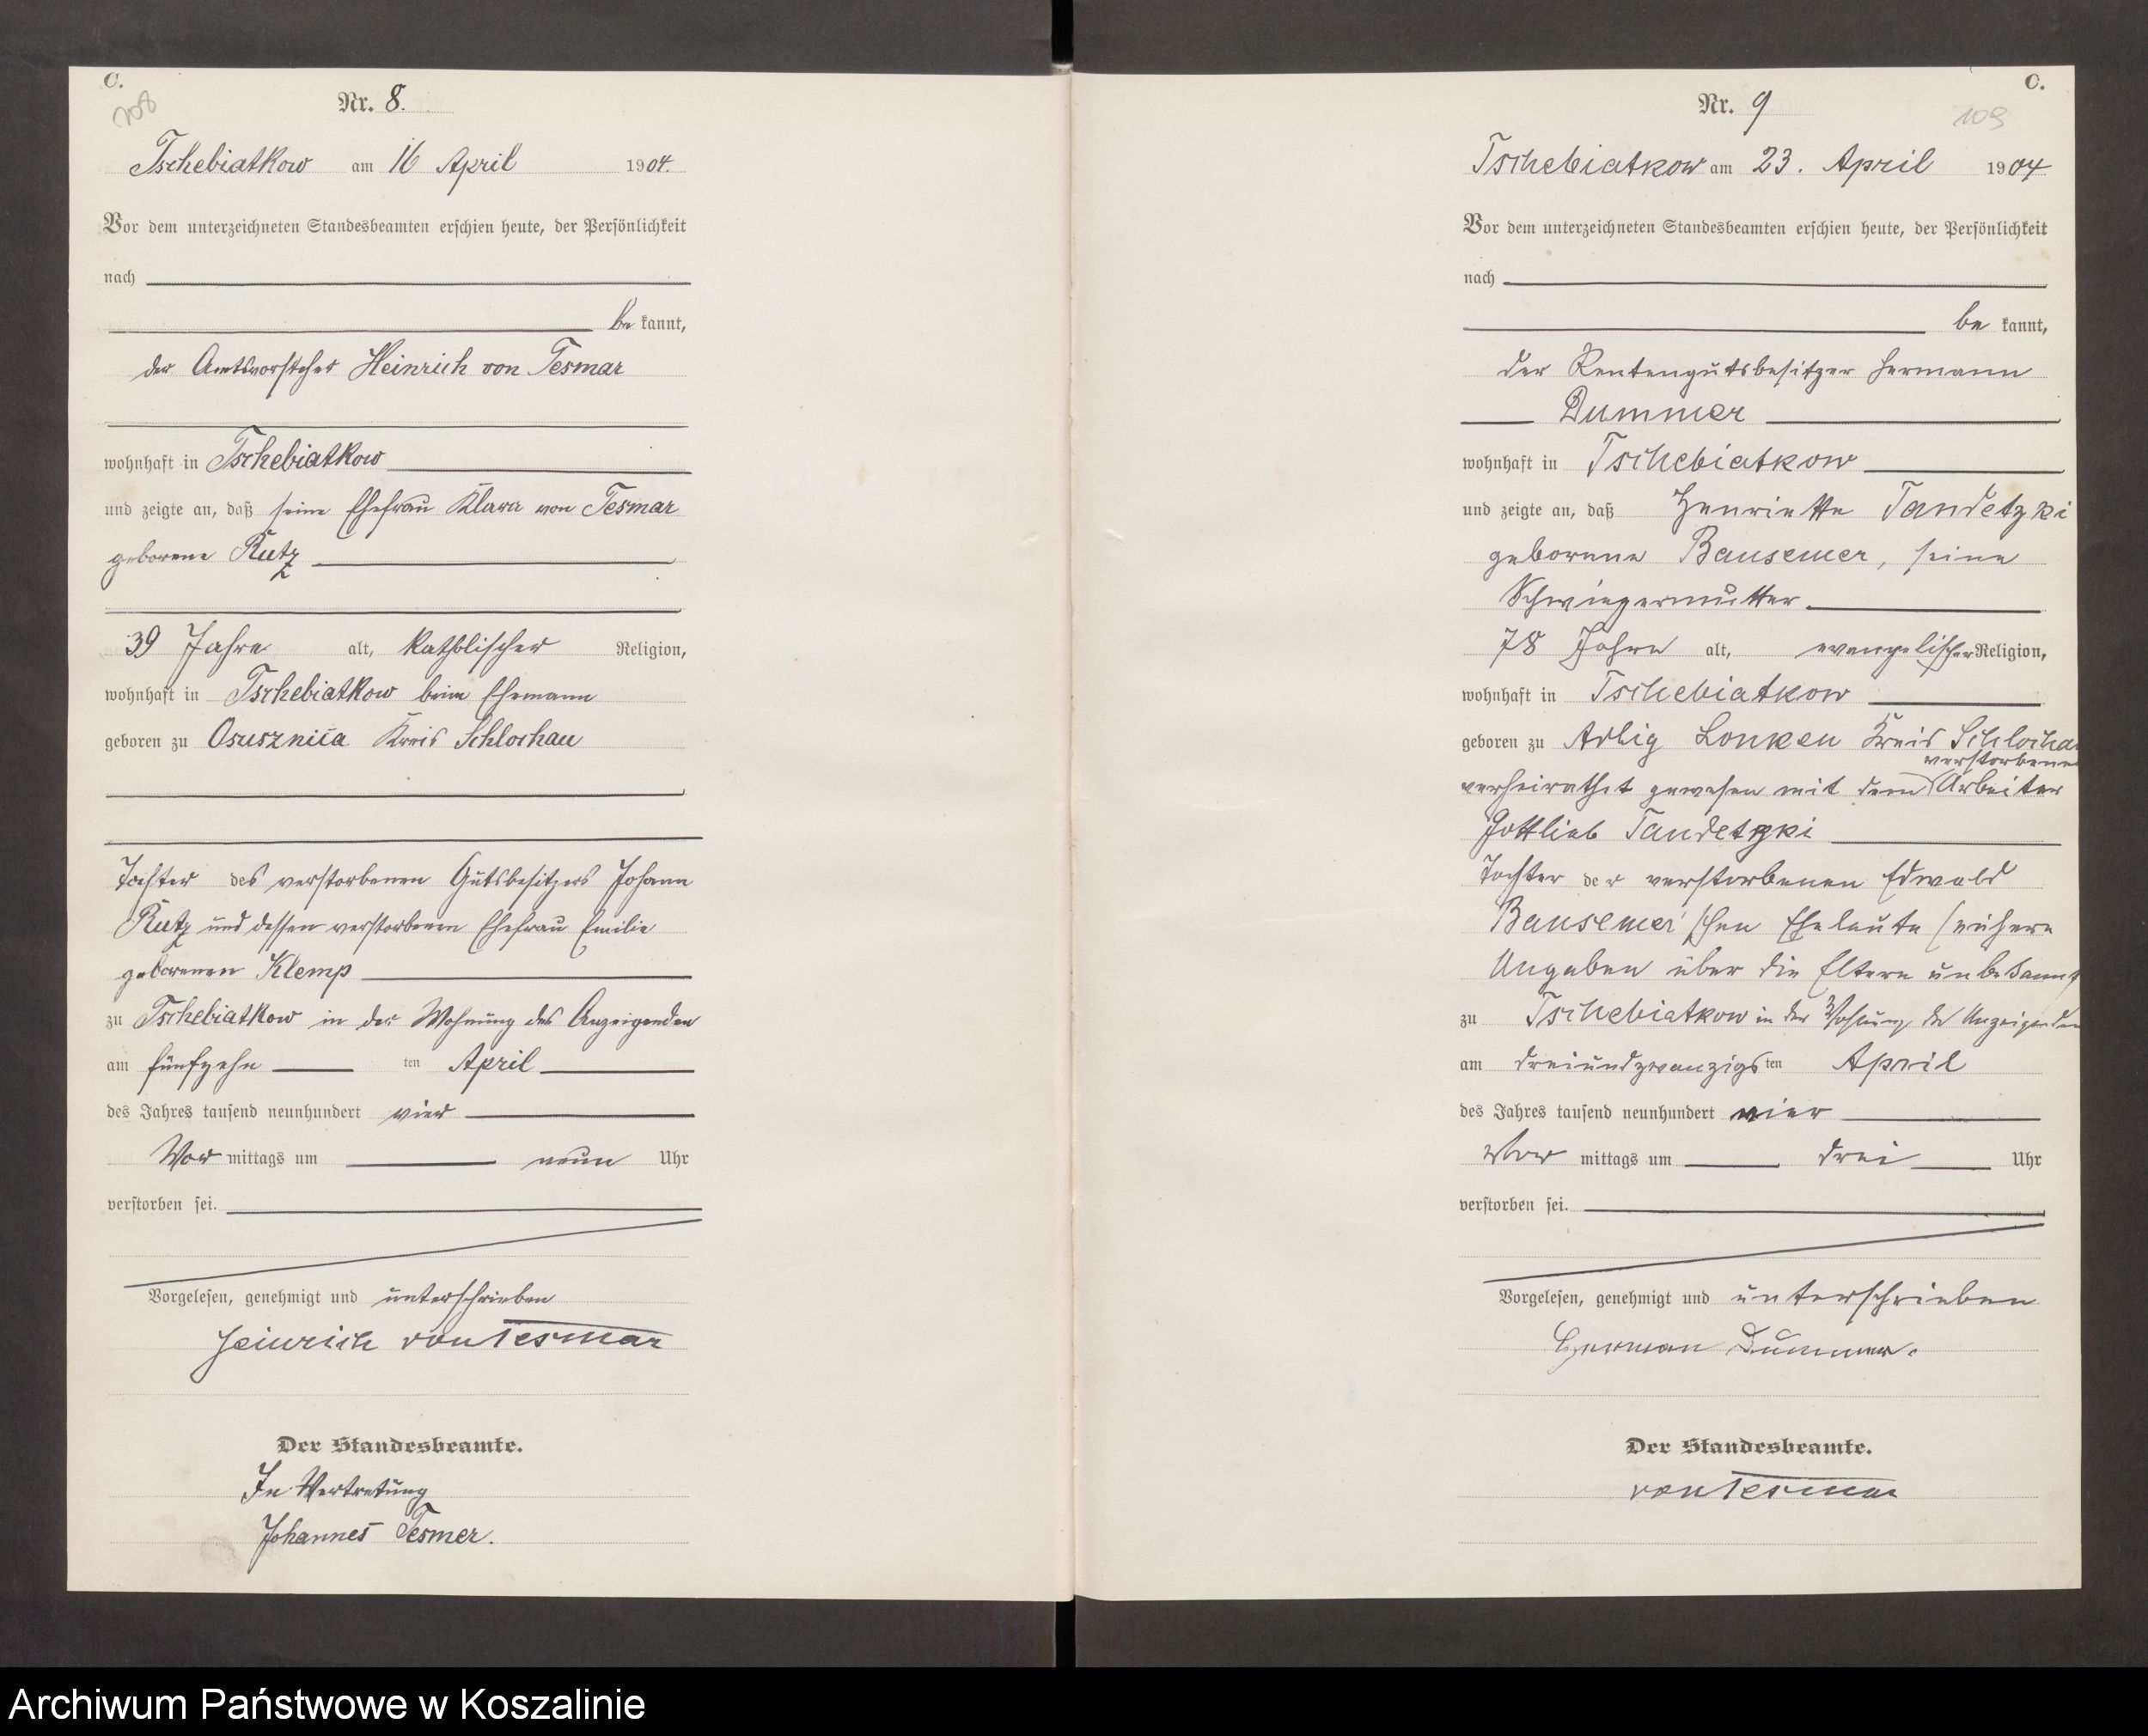 C.
108
Nr. 8.
Tschebiatkow am 16 April 1904.
Vor dem unterzeichneten Standesbeamten erschien heute, der Persönlichkeit
nach
be kannt,
der Amtsvorsteher Heinrich von Tesmar
wohnhaft in Tschebiatkow
und zeigte an, daß seine Ehefrau Klara von Tesmar
geborene Rutz
39 Jahre alt, katholischer Religion,
wohnhaft in Tschebiatkow beim Ehemann
geboren zu Osusznica Kreis Schlochau
Tochter des verstorbenen Gutsbesitzers Johann
Rutz und dessen verstorbenen Ehefrau Emilie
geborenen Klemp
zu Tschebiatkow in der Wohnung des Anzeigenden
am fünfzehn ten April
des Jahres tausend neunhundert vier
Vor mittags um neun Uhr
verstorben sei.
Vorgelesen, genehmigt und unterschrieben
Heinrich von Tesmar
Der Standesbeamte.
In Vertretung
Johannes Tesmer.
C.
109
Nr. 9
Tschebiatkow am 23. April 1904
Vor dem unterzeichneten Standesbeamten erschien heute, der Persönlichkeit
nach
be kannt,
der Rentengutsbesitzer Hermann
Dummer
wohnhaft in Tschebiatkow
und zeigte an, daß Henriette Tandetzki
geborene Bansemer, seine
Schwiegermutter
78 Jahre alt, evangelischer Religion,
wohnhaft in Tschebiatkow
geboren zu Adlig Lonken Kreis Schlochau
verstorbenen
verheirathet gewesen mit dem Arbeiter
Gottlieb Tandetzki
Tochter der verstorbenen Edwald
Bansemer'schen Eheleute (nähere
Angaben über die Eltern unbekannt)
zu Tschebiatkow in der Wohnung des Anzeigenden
am dreiundzwanzigs ten April
des Jahres tausend neunhundert vier
Vor mittags um drei Uhr
verstorben sei.
Vorgelesen, genehmigt und unterschrieben
Herman Dummer.
Der Standesbeamte.
von Tesmar
Archiwum Państwowe w Koszalinie